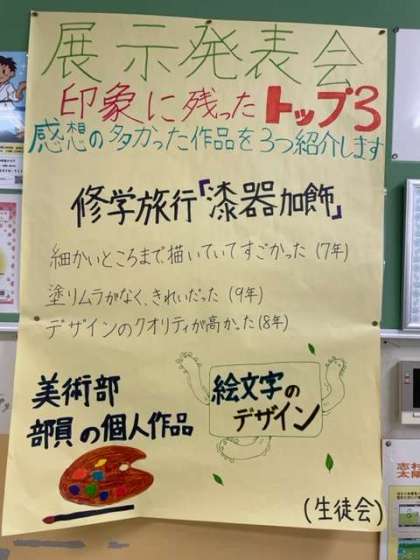 展示発表会
印象に残ったトップ3
感想の多かった作品を3つ紹介します
修学旅行「漆器加飾」
細かいところまで描いていてすごかった(7年)
塗りムラがなく、きれいだった(9年)
デザインのクオリティが高かった(8年)
美術部
部員の個人作品
絵文字の
デザイン
(生徒会)
志村
太陽